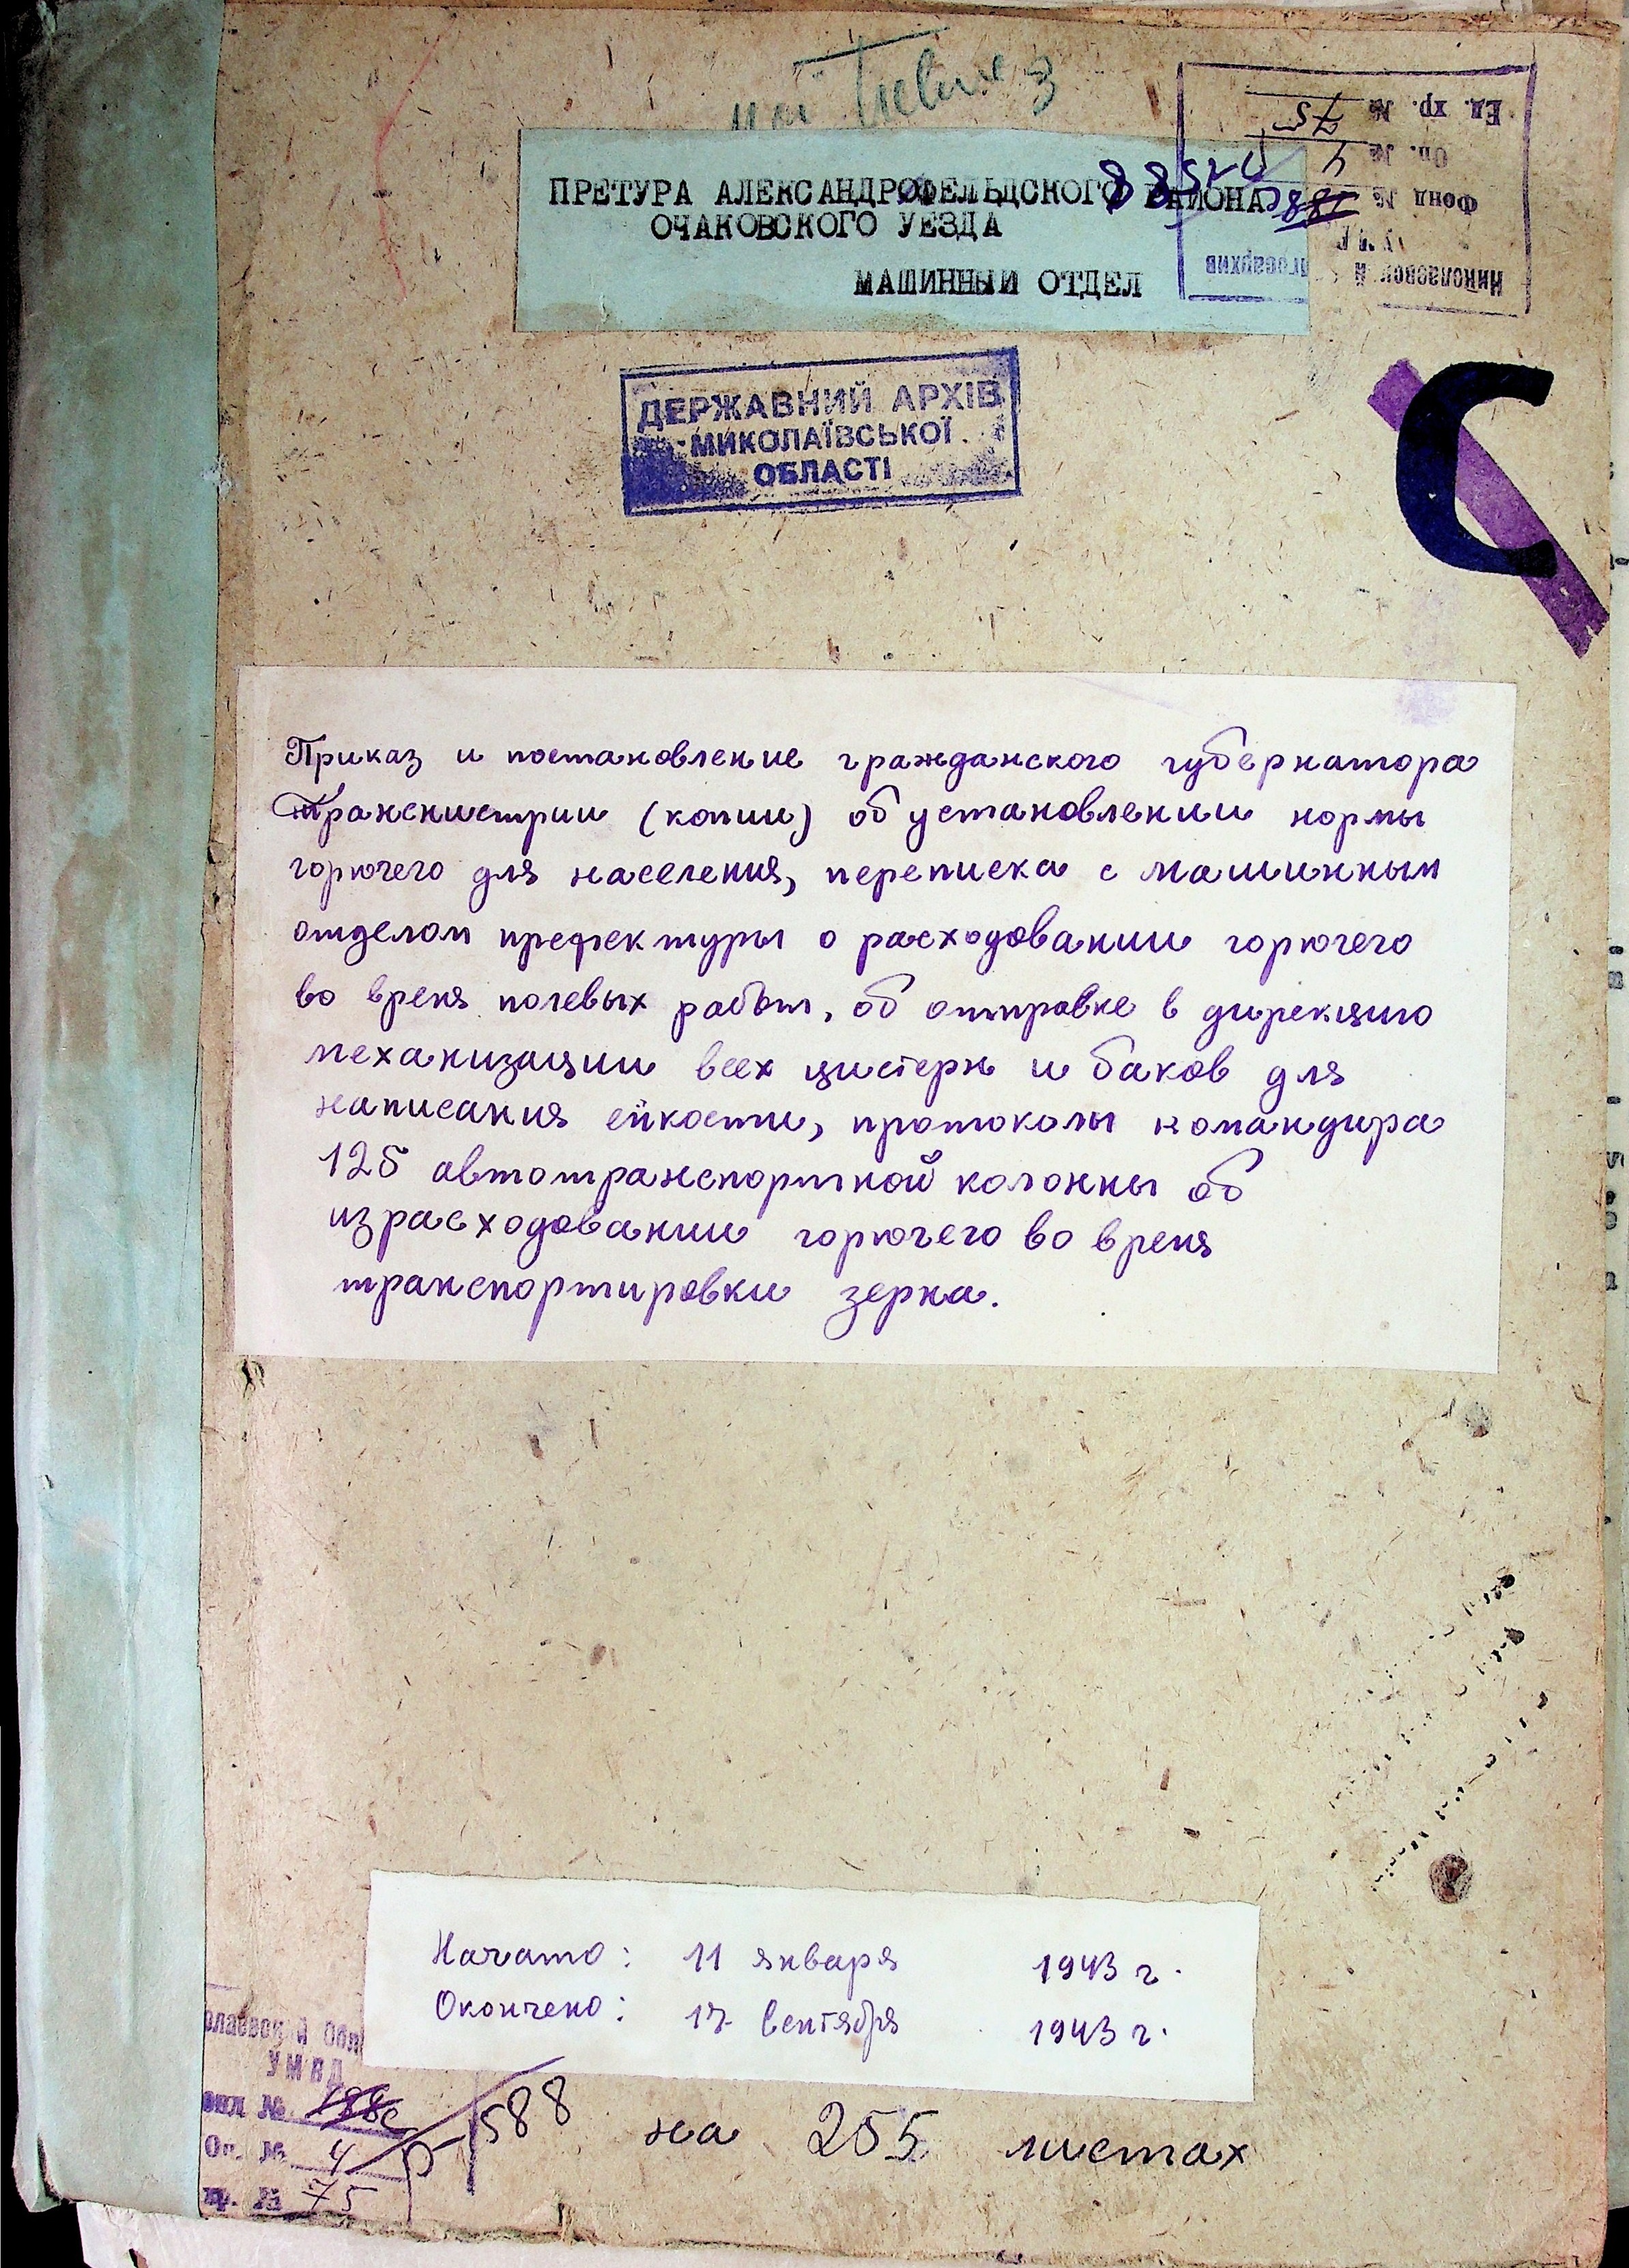 ПРЕТУРА АЛЕКСАНДРОФЕЛЬДСКОГО РАЙОНА
ОЧАКОВСКОГО УЕЗДА
МАШИННЫЙ ОТДЕЛ
Николаевский Облгосархив
Фонд №
Оп. № 4
Ед. хр. № 75
ДЕРЖАВНИЙ АРХІВ
МИКОЛАЇВСЬКОЇ
ОБЛАСТІ
С
Приказ и постановление гражданского губернатора
Транснистрии (копии) об установлении нормы
горючего для населения, переписка с машинным
отделом префектуры о расходовании горючего
во время полевых работ, об отправке в дирекцию
механизации всех цистерн и баков для
написания ёмкости, протоколы командира
125 автотранспортной колонны об
израсходовании горючего во время
транспортировки зерна.
Начато: 11 января 1943 г.
Окончено: 17 сентября 1943 г.
олаевский Обл
УМВД
онд № 188с
Оп. № 4
хр. № 75
Р-1588
на 255 листах